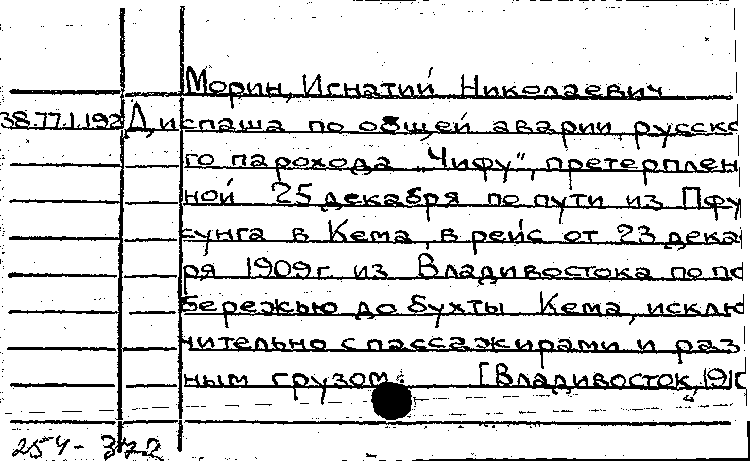 Морин, Игнатий Николаевич
38.77.1.192 Диспаша по общей аварии русско
го парохода „Чифу", претерплен
ной 25 декабря по пути из Пфу
сунга в Кема, в рейс от 23 дека
ря 1909 г. из Владивостока по по
бережью до бухты Кема, исклю
чительно с пассажирами и раз
ным грузом. [Владивосток, 191
254-372